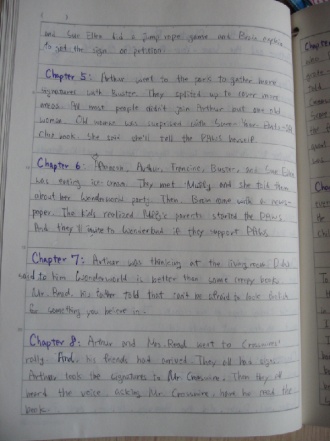 and Sue Ellen did a jump rope game and Brain explain
to get the sign on petition.
Chapter 5: Arthur went to the park to gather more
signatures with Buster. They splited up to cover more
areas. At most people didn't join Arthur but one old
woman. Old woman was surprised with Scare-Your-Pants-Off
Club book. She said she'll tell the PAWS herself.
Chapter 6: Prunella, Arthur, Francine, Buster, and Sue Ellen
was eating ice cream. They met Muffy and she told them
about her Wonderworld party. Then, Brain came with a news-
paper. The kids realized Muffy's parents started the PAWS
And they'll quite to Wonderworld if they support PAWS.
Chapter 7: Arthur was thinking at the living room. D.W.
said to him Wonderworld is better than some creepy books.
Mr. Read, his father told that can't be afraid to look foolish
for something you believe in.
Chapter 8: Arthur and Mrs. Read went to Crosswires'
rally. And, his friends had arrived. They all had signs.
Arthur took the signatures to Mr. Crosswire. Then they all
heard the voice asking Mr. Crosswire have he read the
book.